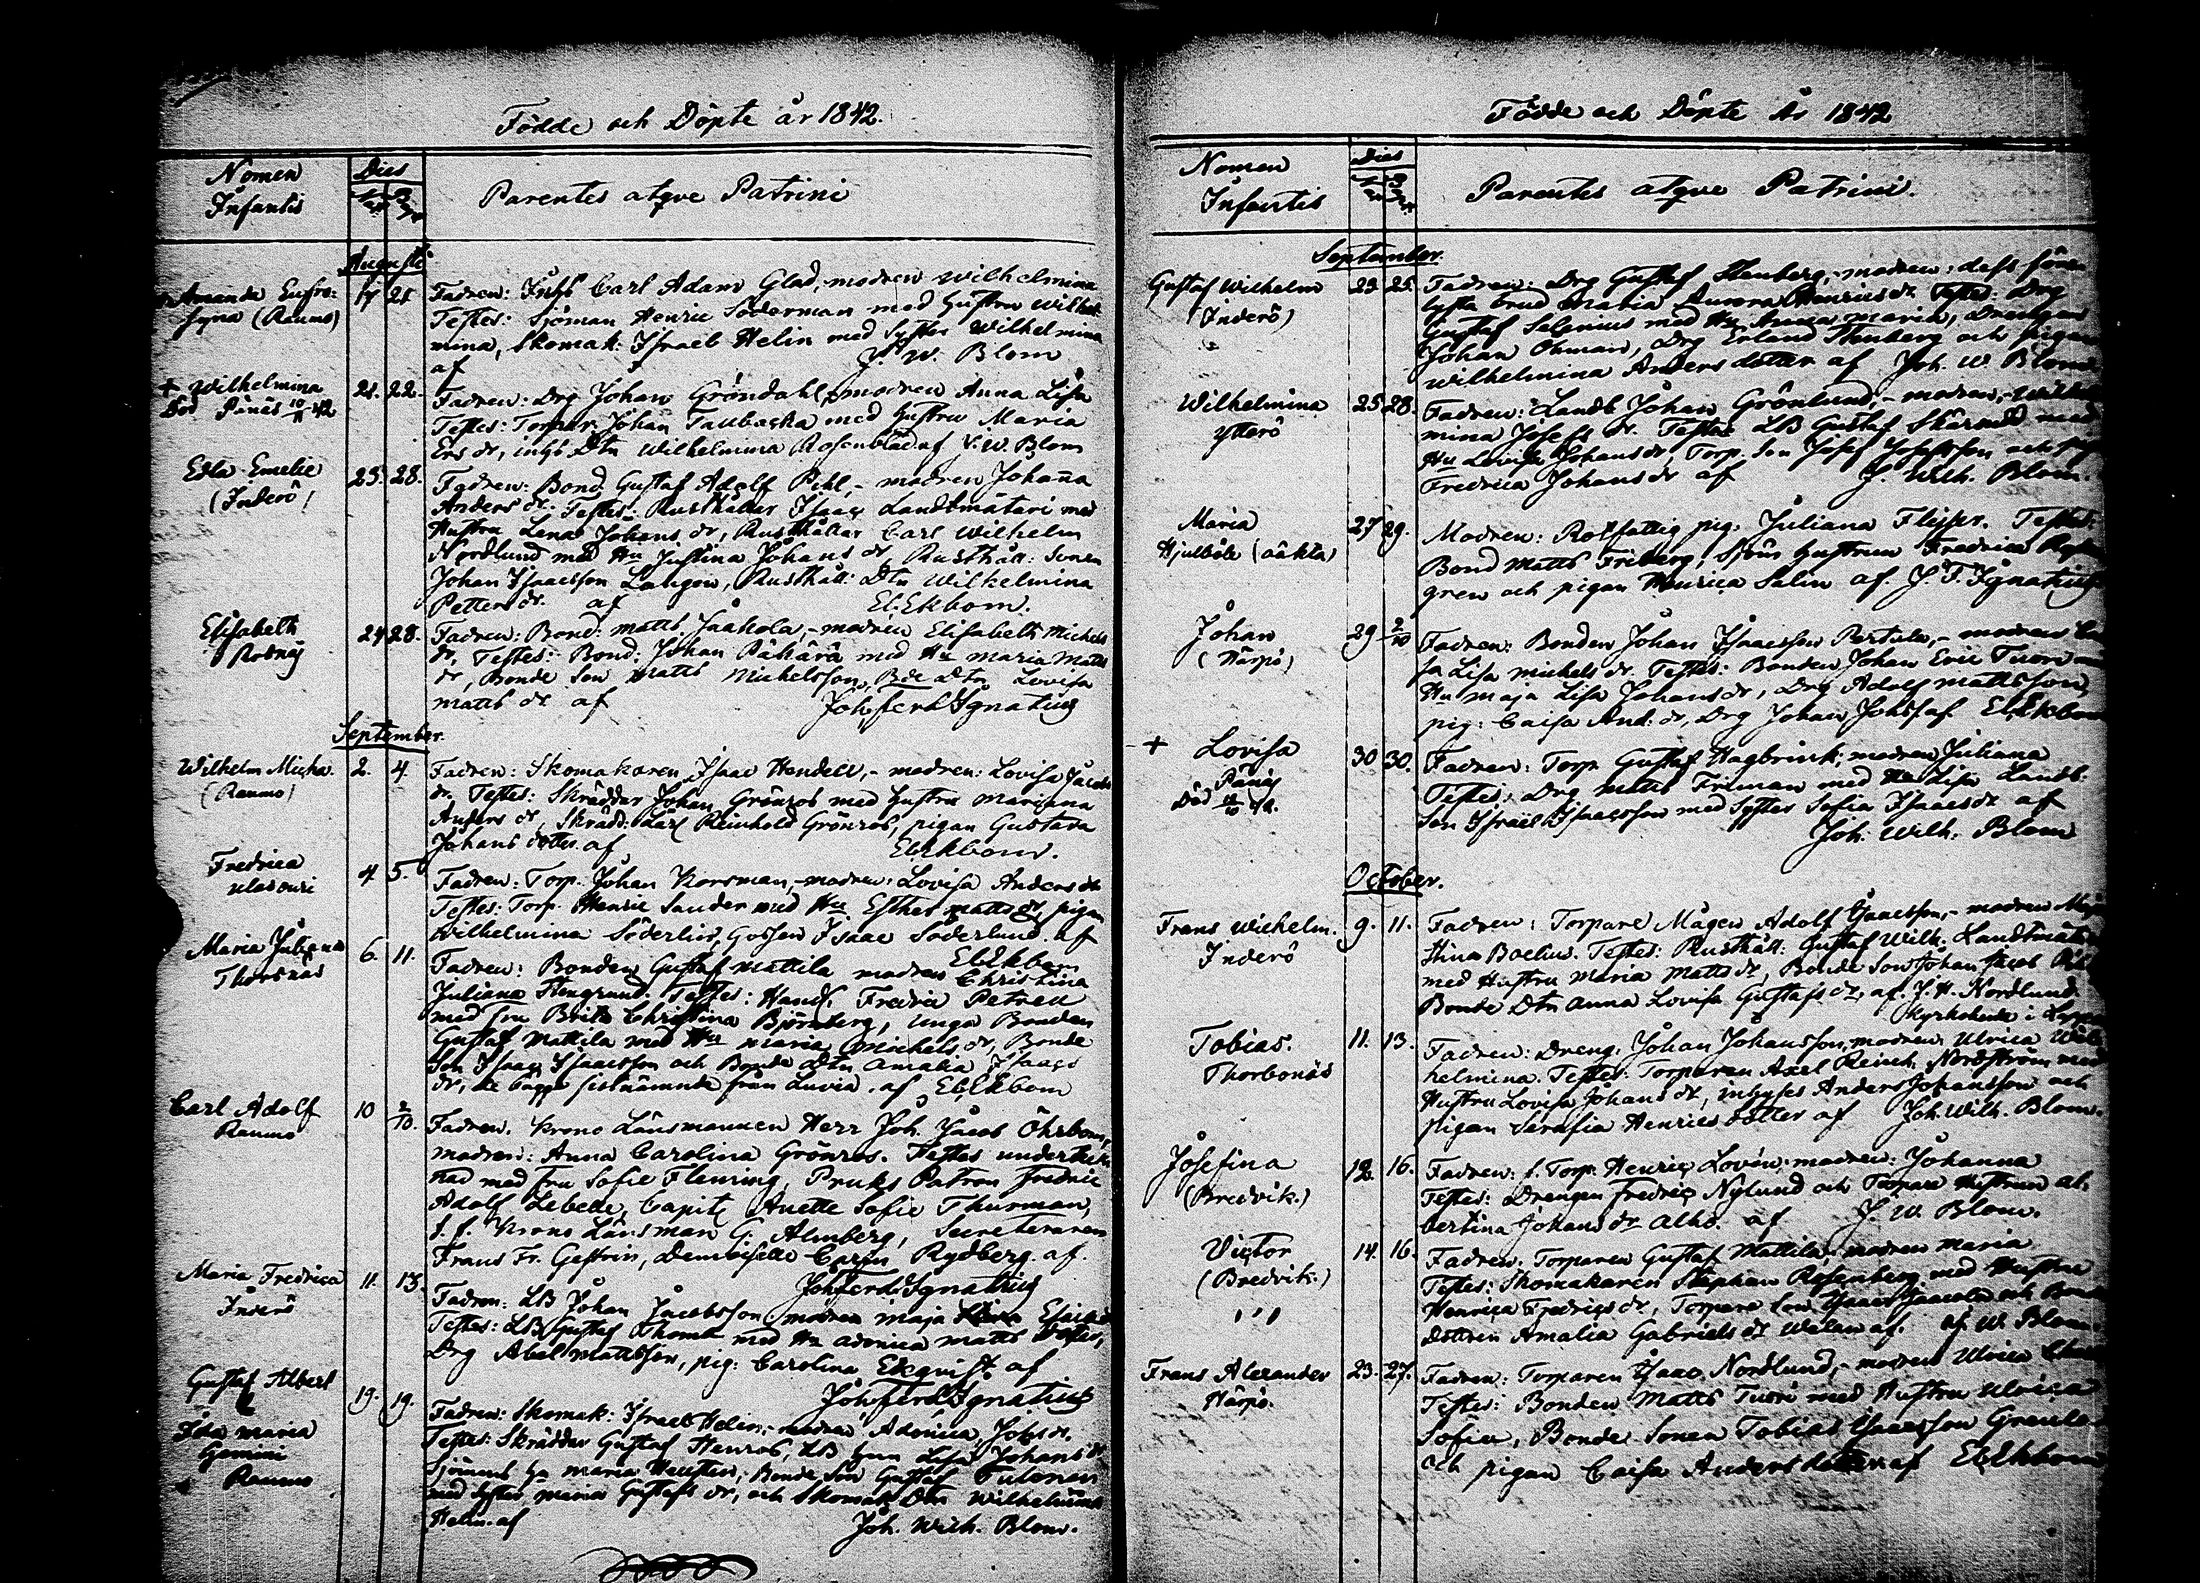 Födde och Döpte år 1842.
Nomen Infantis
Dies
Parentes atqve Patrini
Augusti
Amanda Eufro-
syna (Raumo)
17 21
Fadren: Inhs Carl Adam Glad, modren Wilhelmina
Testes: Sjöman Henric Söderman med Hustru Wilhel-
mina, Skomak: Israel Helin med Syster Wilhelmina
af J. W. Blom
+ Wilhelmina
Död Pänäs 10/11 42
21. 22.
Fadren: Drg Johan Gröndahl, modren Anna Lisa
Testes: Torpar Johan Taubaska med Hustru Maria
Ers dr, inhs Dtn Wilhelmina Rosenblad af J. W. Blom
Edla Emelie
(Inderö)
23. 28.
Fadren: Bond. Gustaf Adolf Pihl, - modren Johanna
Anders dr. Testes: Rusthållar Isaac Landtmätari med
Hustru Lena Johans dr, Rusthållar Carl Wilhelm
Nordlund med Hu Justina Johans dr, Rusthåll: Sonen
Johan Isaacsson Langen, Rusthåll: Dtn Wilhelmina
Petters dr. af El. Ekbom.
Elisabeth
24 28.
Fadren: Bond: Matts Jaakola, - modren Elisabeth Michels
dr, Testes: Bond: Johan Päkärä med Hu Maria Matts
dr, Bonde Son Matts Michelsson, Bde Dtn Lovisa
Matts dr af Joh ferd Ignatius
September.
Wilhelm Micha.
(Raumo)
2. 4.
Fadren: Skomakaren Isaac Hendell, - modren: Lovisa Jacobs
dr. Testes: Skräddar Johan Grönroos med Hustru Mariana
Anders dr, Skrädd: Carl Reinhold Grönroos, pigan Gustava
Johans dotter af El. Ekbom.
Fredrica
4 5.
Fadren: Torp. Johan Korsman, - modren: Lovisa Anders dr
Testes: Torp Henric Sander med Hu Esther Matts dr, pigan
Wilhelmina Söderlund, Gossen Isaac Söderlund. af
El. Ekbom
Maria Juliana
Thorsnäs
6. 11.
Fadren: Bonden Gustaf Mattila modren Christina
Juliana Stengrund. Testes: Handl. Fredric Petrell
med fru Brita Christina Björnberg, unga Bonden
Gustaf Mattila med Hu Maria Michels dr, Bonde
Son Isaac Isaacsson och Bonde Dtn Amalia Isaacs
dr, de bägge sistnämnde från Luvia. af El. Ekbom
Carl Adolf
Raumo
10 2/10.
Fadren. Krono Länsmannen Herr Joh. Jacob Öhrbom,
modren: Anna Carolina Grönros. Testes underteck-
nad med fru Sofie Fleming, Bruks Patron Fredric
Adolf Lebell, Capit. Anette Sofie Thurman,
t. f. Krono Länsman G. Almberg, Secreteraren
Frans Fr. Gestrin, Demoiselle Carin Rydberg af.
Joh ferd Ignatius
Maria Fredrica
Inderö
11. 13.
Fadren: LB Johan Jacobsson, modren Maja Esaias dr
Testes: LB Gustaf Thomt med Hu Adonica Matts dotter,
Drg Abel Mattsson, pig: Carolina Ekquist af
Joh ferd Ignatius
Gustaf Albert
Ida Maria
Gemini
Raumo
19. 19.
Fadren: Skomak: Israel Helin: modren Adonica Johs dr.
Testes: Skräddar Gustaf Henros, LB Lisa Johans dr
Sjömans Hu Maria Hellsten, Bonde Son Gustaf Tulonen
med Syster Maria Gustafs dr, och Skomak. Dtn Wilhelmina
Helin. af Joh. Wilh. Blom.
Födde och Döpte År 1842
Nomen Infantis
Dies
Parentes atqve Patrini.
September.
Gustaf Wilhelm
(Inderö)
23. 25.
Fadren: Drg Gustaf Stenberg, modren: dess fören
lysta brud Maria Aurora Henrics dr. Testes: Drg
Gustaf Selenius med Hu Anna Maria, Drengen
Johan Öhman, Drg Erland Stenberg och pigan
Wilhelmina Anders dotter af Joh. W. Blom
Wilhelmina
Ytterö
25 28.
Fadren: Landb Johan Grönlund, - modren, - Wilhel
mina Josefs dr. Testes LB Gustaf Skärlund med
Hu Lovisa Johans dr Torp. Son Josef Josefsson och pig
Fredrica Johans dr af J. Wilh. Blom.
Maria
Hjulböle (oäkta)
27 29.
Modren: Rotfattig pig: Juliana Flinck. Testes:
Bond Matts Friberg, Sjöms Hustrun Fredrica
gren och pigan Henrica Salin af. J. F. Ignatius
Johan
(Härpö)
29 2/10
Fadren: Bonden Johan Isaacsson Pertula, - modren Cai
sa Lisa Michels dr. Testes: Bonden Johan Eric Tuori
Hu Maja Lisa Johans dr, Drg Adolf Mattsson,
pig: Caisa And: dr, Drg Johan Johss af. El. Ekbom
+ Lovisa
Pänäs
Död
30 30.
Fadren: Torp Gustaf Hagbrink, modren Juliana
Testes: Drg Matts Friman med Hu Lisa Landb.
Son Israel Isaacsson med Syster Sofia Isaacs dr af
Joh. Wilh. Blom
October.
Frans Wilhelm.
Inderö
9. 11.
Fadren: Torpare Mågen Adolf Isaacsson, - modren Maja
Stina Boelius. Testes: Rusthåll: Gustaf Wilh. Landtmätari
med Hustru Maria Matts dr, Bonde Son Johan Jacob
Bonde Dtn Anna Lovisa Gustafs dr, af. J. H. Nordlund
Kyrkoherde i
Tobias.
Thorbonäs
11. 13.
Fadren: Dreng: Johan Johansson, modren: Ulrica Wil-
helmina. Testes: Torparen Axel Reinh. Nordström med
Hustru Lovisa Johans dr, inhyses Anders Johansson och
pigan Serafia Henrics dotter af Joh. Wilh. Blom.
Josefina
(Bredvik.)
12. 16.
Fadren: f. Torp. Henric Lovén, modren: Johanna
Testes: Drengen Fredric Nylund och Torpare Hustrun Al-
bertina Johans dr Alho. af J. W. Blom.
Victor
(Bredvik.)
14. 16.
Fadren: Torparen Gustaf Mattila, modren Maria
Testes: Skomakaren Stephan Rosenberg med Hustru
Henrica Fredrics dr, Torpare Son Isaac Jacobs och Bonde
Dottren Amalia Gabriels dr af. J. W. Blom.
Frans Alexander
Härpö.
23. 27.
Fadren: Torparen Isaac Nordlund, - modren Ulrica
Testes: Bonden Matts Tuori med Hustru Ulrica
Sofia, Bonde Sonen Tobias Isaacsson
och pigan Caisa Anders dotter af El. Ekbom